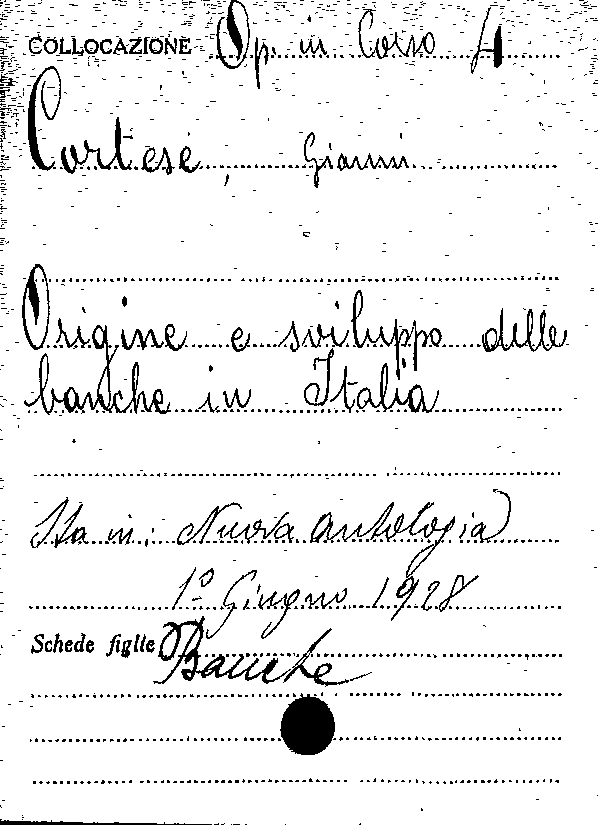 COLLOCAZIONE Op. in Corso 4
Cortese, Gianni
Origine e sviluppo delle
banche in Italia
Sta in: Nuova Antologia
1º Giugno 1928
Schede figlie Banche